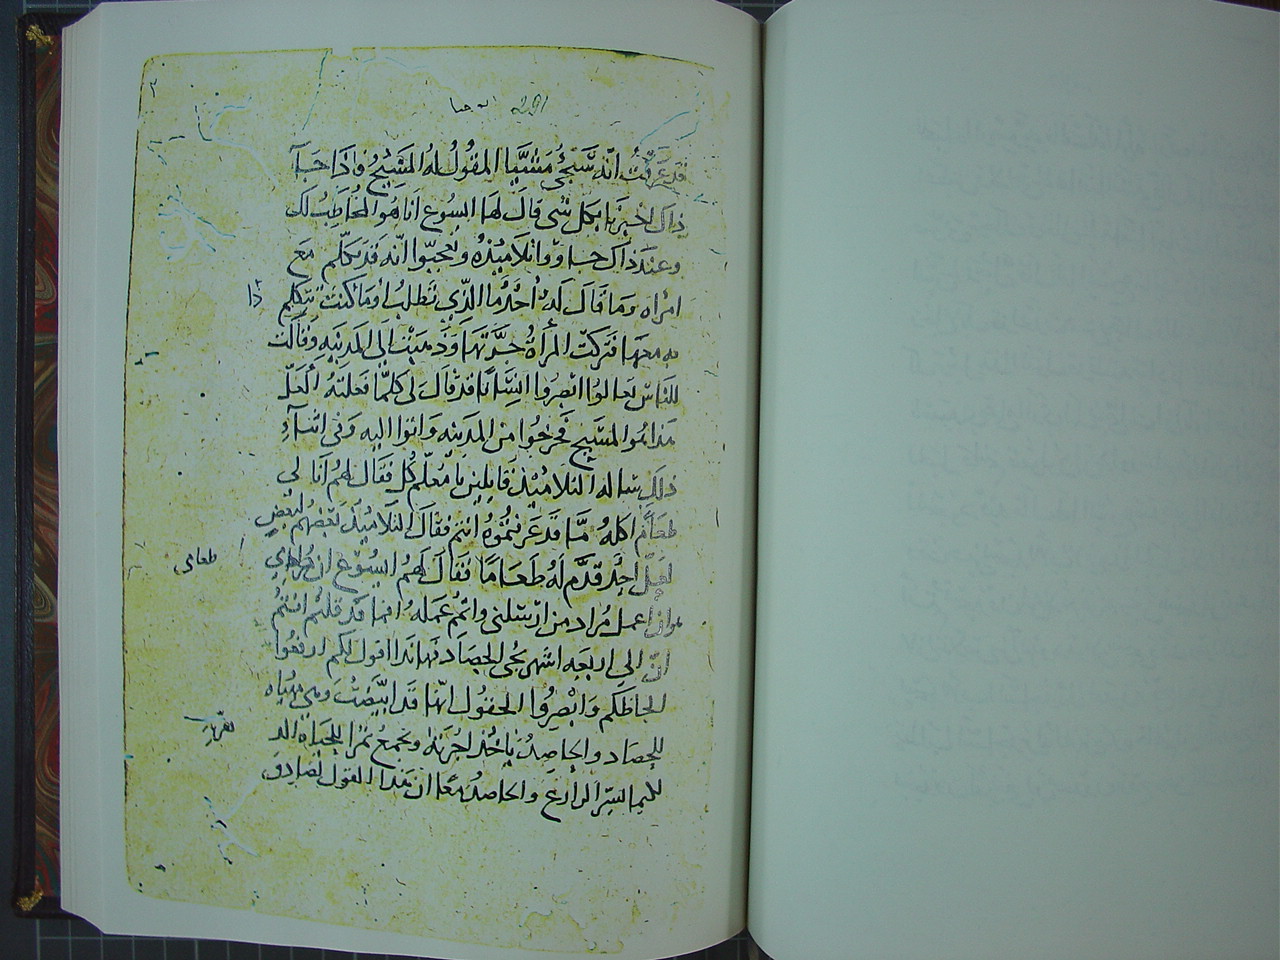 قد عرفت انه سيجئ مسيا المقول له المسيح فاذا جا
ذاك اخبرنا بكل شى قال لها ايسوع انا هو المخاطب لك
وعند ذاك جاووا تلاميذه وتعجبوا انه قد تكلم مع
امراه وما قال له احد ما الذي تطلب او ما كنت تتكلم
به معها فتركت المراة جرتها وذهبت الى المدينه وقالت
للناس تعالوا ابصروا انسانا قد قال لي كلما فعلته العل
هذا هو المسيح فخرجوا من المدينه واتوا اليه وفي اثناء
ذلك ساله التلاميذ قايلين يا معلم كل فقال لهم انا لي
طعام اكله ما قد عرفتموه انتم فقال التلاميذ بعضهم لبعض
لعل احد قدم له طعاما فقال لهم ايسوع ان
طعامي
اعمل مراد من ارسلني واتم عمله اما قد قلتم انتم
ان الى اربعه اشهر يجى الحصاد فها انذا اقول لكم ارفعوا
الحاظكم وابصروا الحقول انها قد ابيضت وهي مهياه
للحصاد والحاصد ياخذ اجرته ويجمع ثمرا للحياة
ليسر الزارع والحاصد معا ان هذا القول لصادق